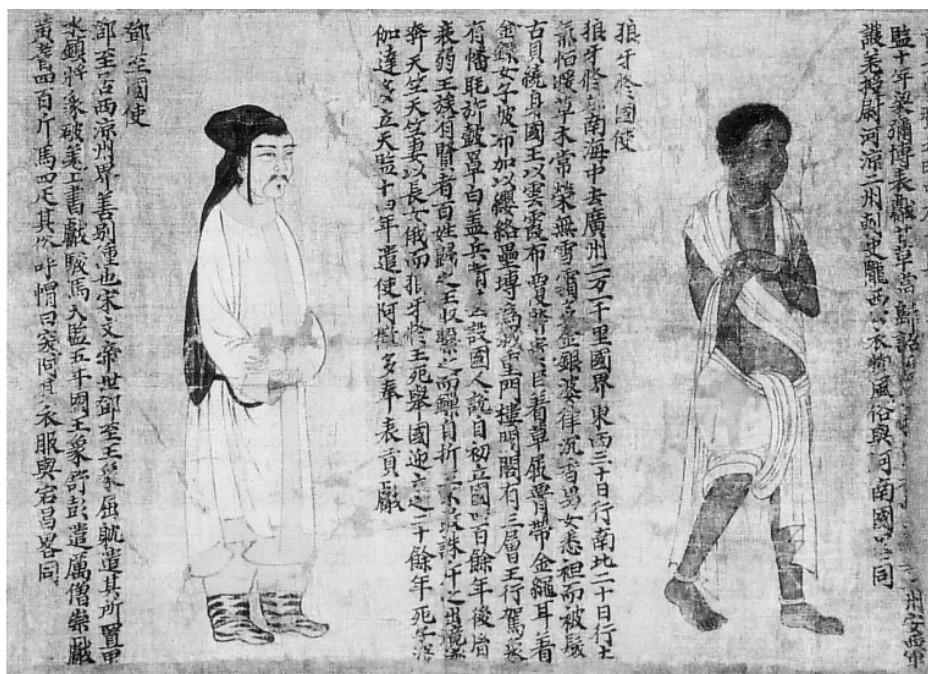 監十年梁彌博表獻甘草當歸詔
護羌授尉河涼二州刺史隴西公衣物風俗與河南國同
狼牙脩國使
狼牙脩在南海中去廣州二万一千里國界東西三十日行南北二十日行土
氣恬暖草木常榮無雪霜多金銀婆律沉香男女悉袒而被髮
古貝繞身國王以雲霞布覆貴臣着草屐脅帶金繩耳着
金鐶女子被布加以纓絡壘塼為城重門樓閣閣有三層王行駕象
有幡眊旂鼓罩白蓋兵設國人說自初立國四百餘年後嗣
衰弱王族有賢者百姓歸之王收縶之而鏁自折王不敢誅斥之出境遂
奔天竺天竺妻以長女俄而狼牙脩王死舉國迎立之二十餘年死子婆
伽達多立天監十四年遣使阿撤多奉表貢獻
鄧至國使
鄧至居西涼州界羌別種也宋文帝世鄧至王象屈躭遣其所置甲
水鎮將象破羌上書獻駿馬天監五年國王象舒彭遣厲僧崇獻
黃耆四百斤馬四疋其俗呼帽曰突何其衣服與宕昌畧同